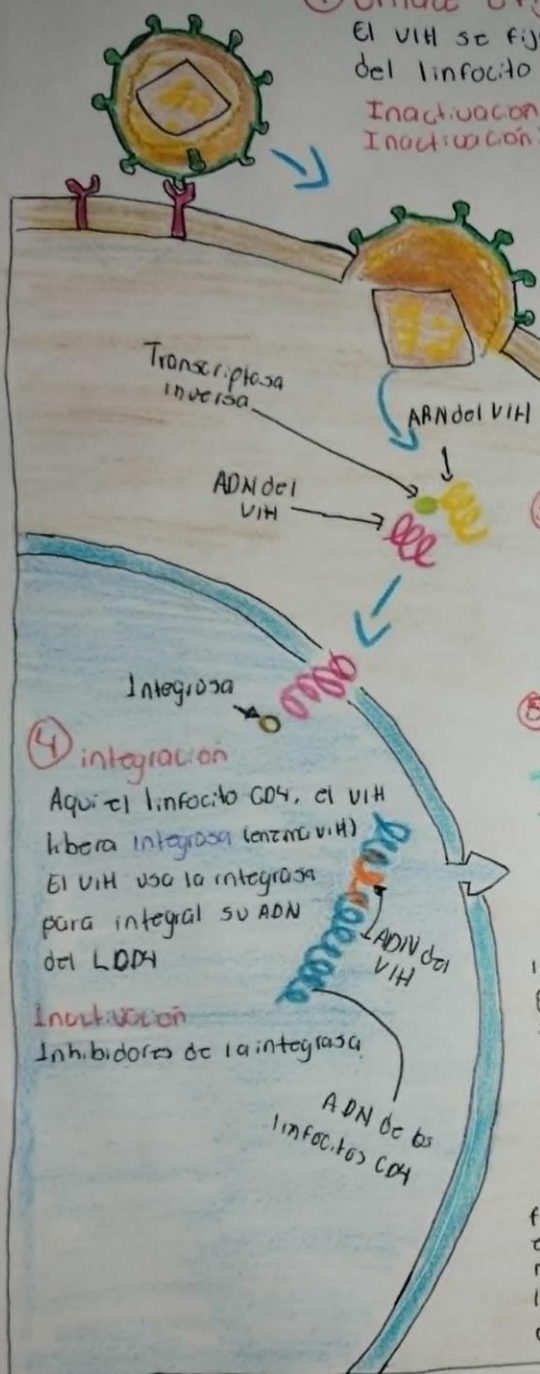 El VIH se fij
del linfocito
Inactivacion
Inactivación
Transcriptasa
inversa
ARN del VIH
ADN del
VIH
Integrasa
4 integración
Aqui el linfocito CD4, el VIH
libera integrasa (enzima VIH)
El VIH usa la integrasa
para integral su ADN
del LDD4
Inactivación
Inhibidores de la integrasa
ADN del
VIH
ADN de los
linfocitos CD4